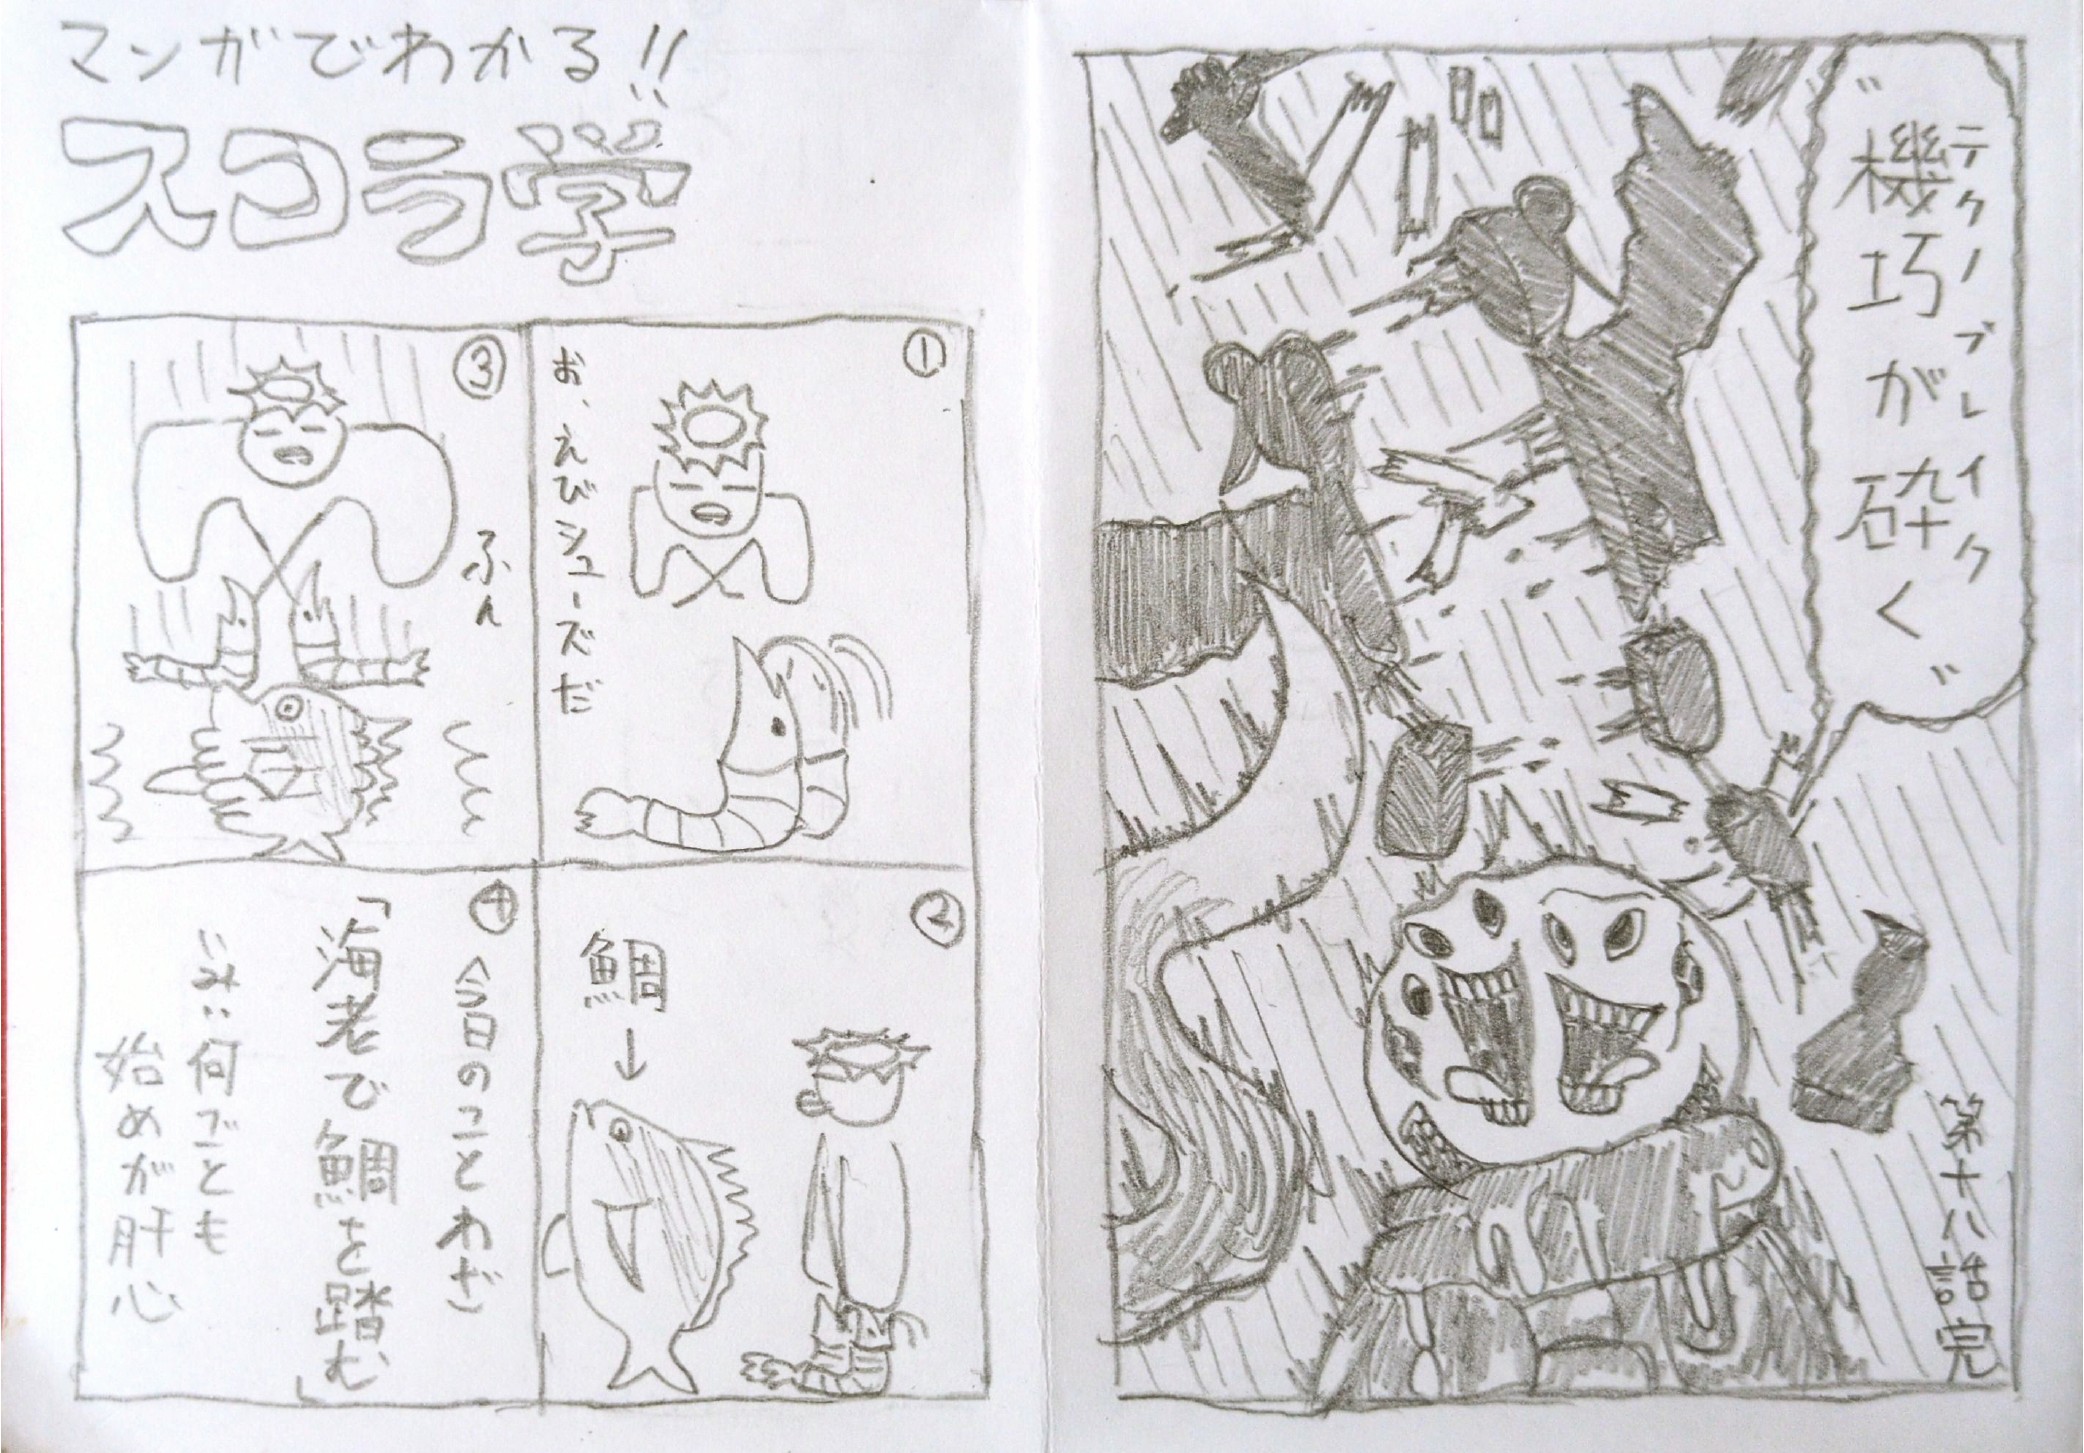 "機巧が砕く"
テクノブレイク
第十八話完
マンガでわかる!!
スコラ学
①
お、えびシューズだ
②
鯛
↓
③
ふん
④
今日のことわざ
「海老で鯛を踏む」
いみ:何ごとも
始めが肝心